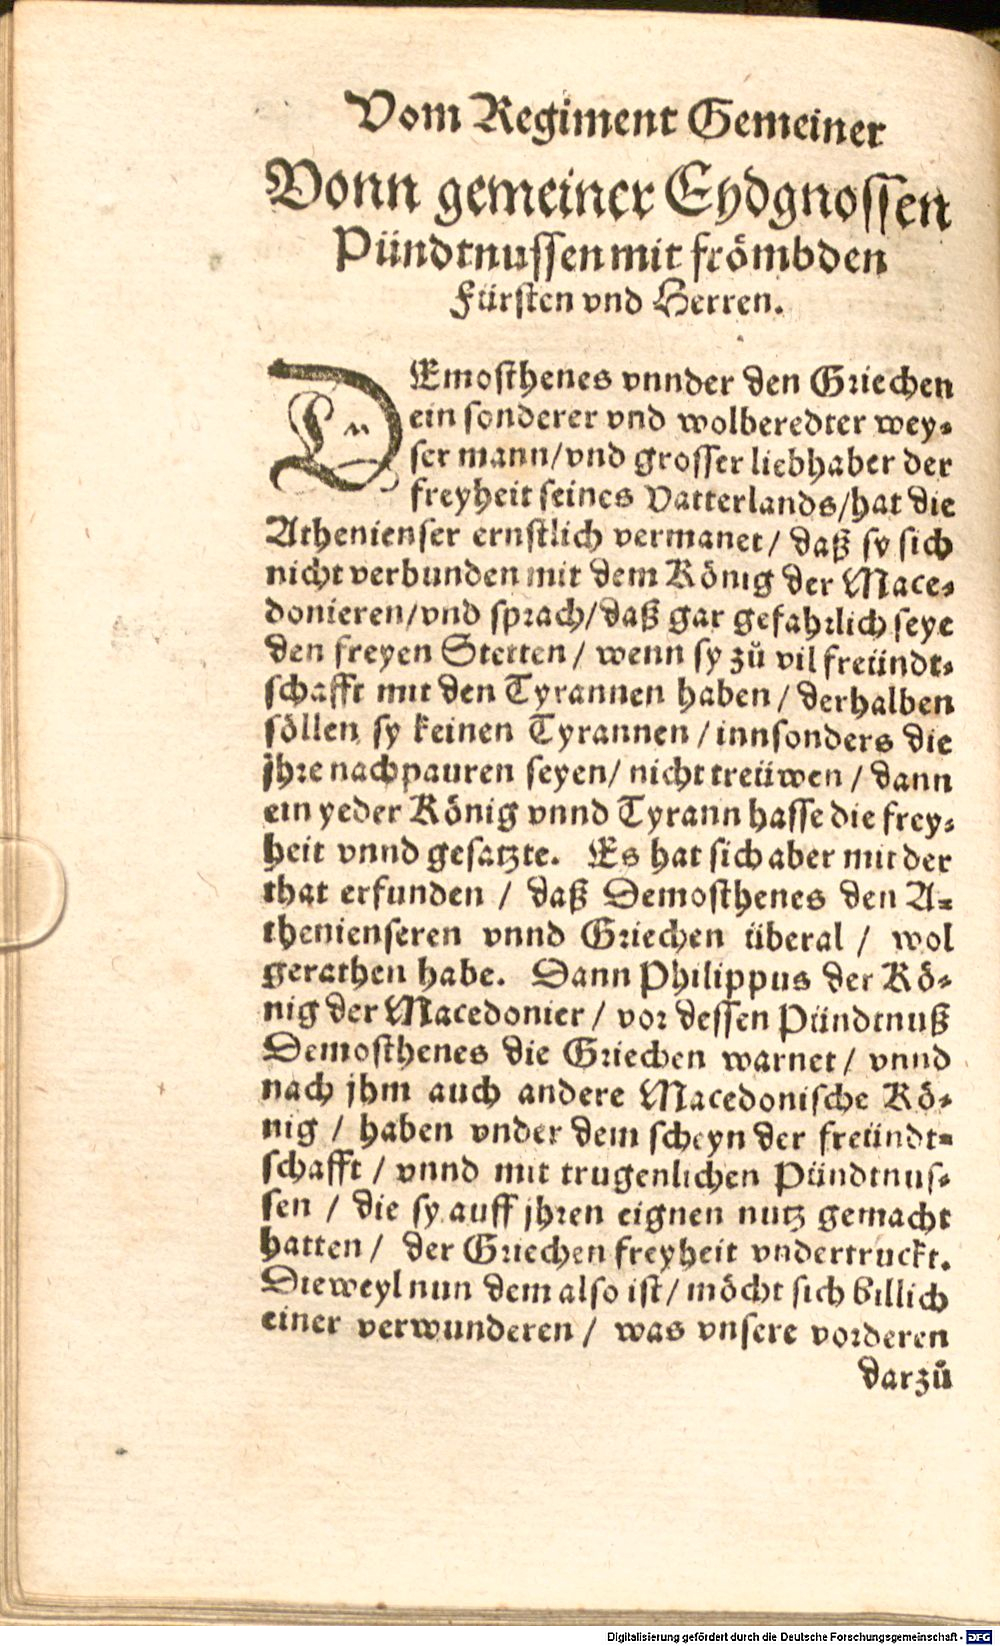 Vom Regiment Gemeiner
Vonn gemeiner Eydgnossen
Pündtnussen mit frömbden
Fürsten vnd Herren.
DEmosthenes vnnder den Griechen
ein sonderer vnd wolberedter wey-
ser mann/vnd grosser liebhaber der
freyheit seines Vatterlands/hat die
Athenienser ernstlich vermanet/ daß sy sich
nicht verbunden mit dem König der Mace-
donieren/vnd sprach/daß gar gefahrlich seye
den freyen Stetten/ wenn sy zů vil freündt-
schafft mit den Tyrannen haben/ derhalben
söllen sy keinen Tyrannen/innsonders die
jhre nachpauren seyen/ nicht treüwen/ dann
ein yeder König vnnd Tyrann hasse die frey-
heit vnnd gesatzte. Es hat sich aber mit der
that erfunden/ daß Demosthenes den A-
thenienseren vnnd Griechen überal/ wol
gerathen habe. Dann Philippus der Kö-
nig der Macedonier/ vor dessen Pündtnuß
Demosthenes die Griechen warnet/ vnnd
nach jhm auch andere Macedonische Kö-
nig/ haben vnder dem scheyn der freündt-
schafft/ vnnd mit trugenlichen Pündtnus-
sen/ die sy auff jhren eignen nutz gemacht
hatten/ der Griechen freyheit vndertruckt.
Dieweyl nun dem also ist/ möcht sich billich
einer verwunderen/ was vnsere vorderen
darzů
Digitalisierung gefördert durch die Deutsche Forschungsgemeinschaft - DFG